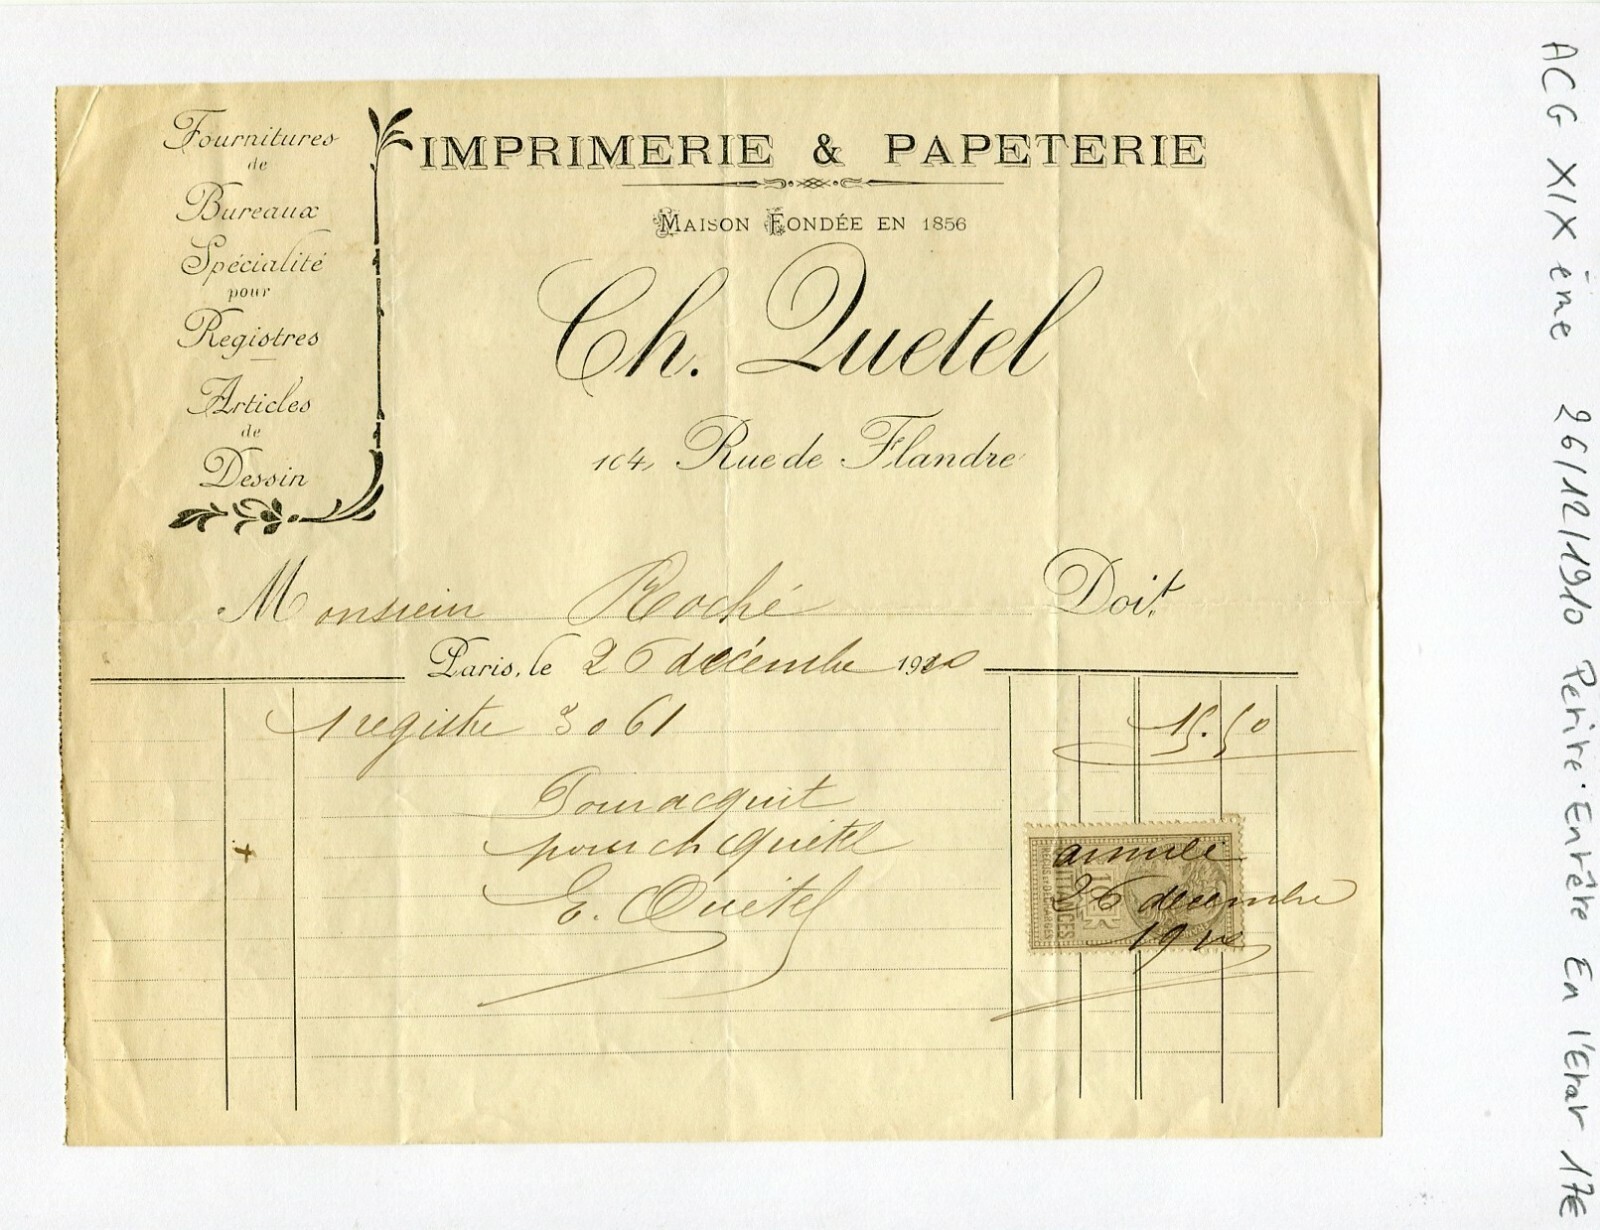 Fournitures
de
Bureaux
Spécialité
pour
Registres
Articles
de
Dessin
IMPRIMERIE & PAPETERIE
MAISON FONDÉE EN 1856
Ch. Quetel
104, Rue de Flandre
Monsieur Roché Doit
Paris, le 26 décembre 1910
1 registre 3061 15.50
Pour acquit
pour ch Quétel
E. Quétel
QUITTANCES
REÇUS ET DÉCHARGES
10c
annulé
26 décembre
1910
ACG XIX ème 26/12/1910 Petite Entête En l'Etat 17€